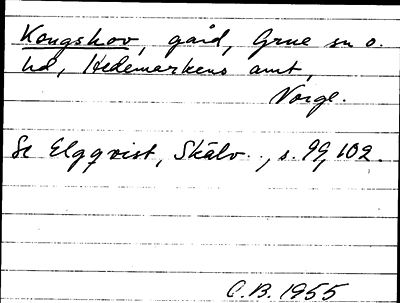 Kongskov, gård, Grue sn o.
hd, Hedemarkens amt,
Norge.
Se Elgqvist, Skälv.., s. 99, 102.
C.B. 1955